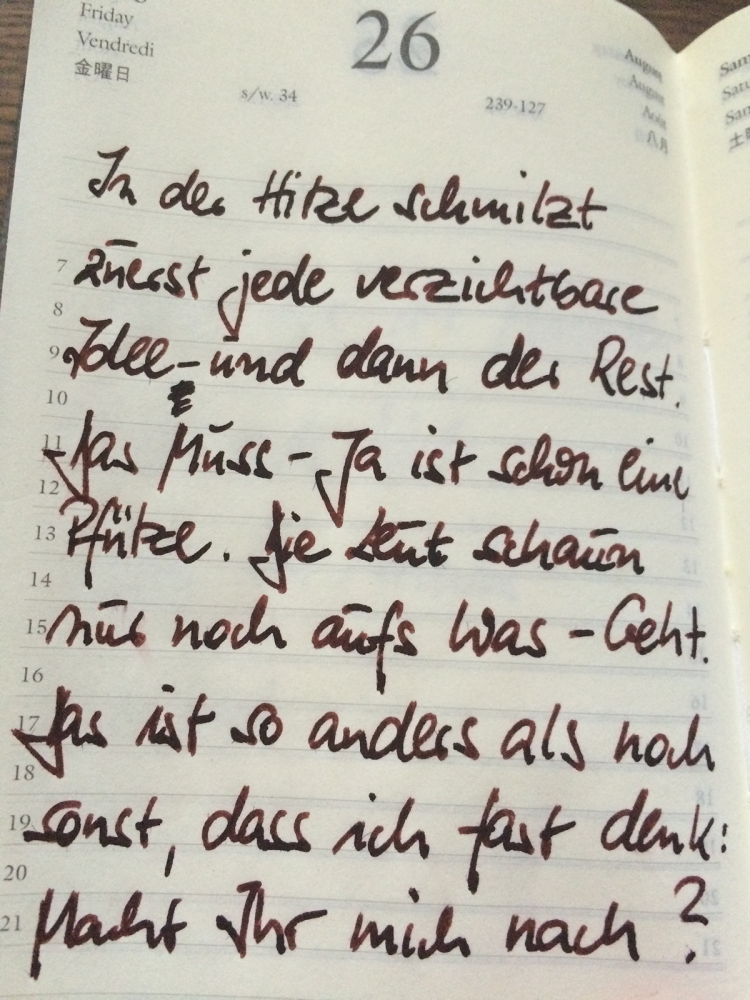 Friday
Vendredi
金曜日
26
August
August
Août
八月
s/w. 34
239-127
In der Hitze schmilzt
7 zuerst jede verzichtbare
8
9 Idee – und dann der Rest.
10
11 Das Muss – Ja ist schon eine
12
13 Pfütze. Die Leut schaun
14
15 nur noch aufs Was – Geht.
16
17 Das ist so anders als noch
18
19 sonst, dass ich fast denk:
20
21 Macht Ihr mich nach?